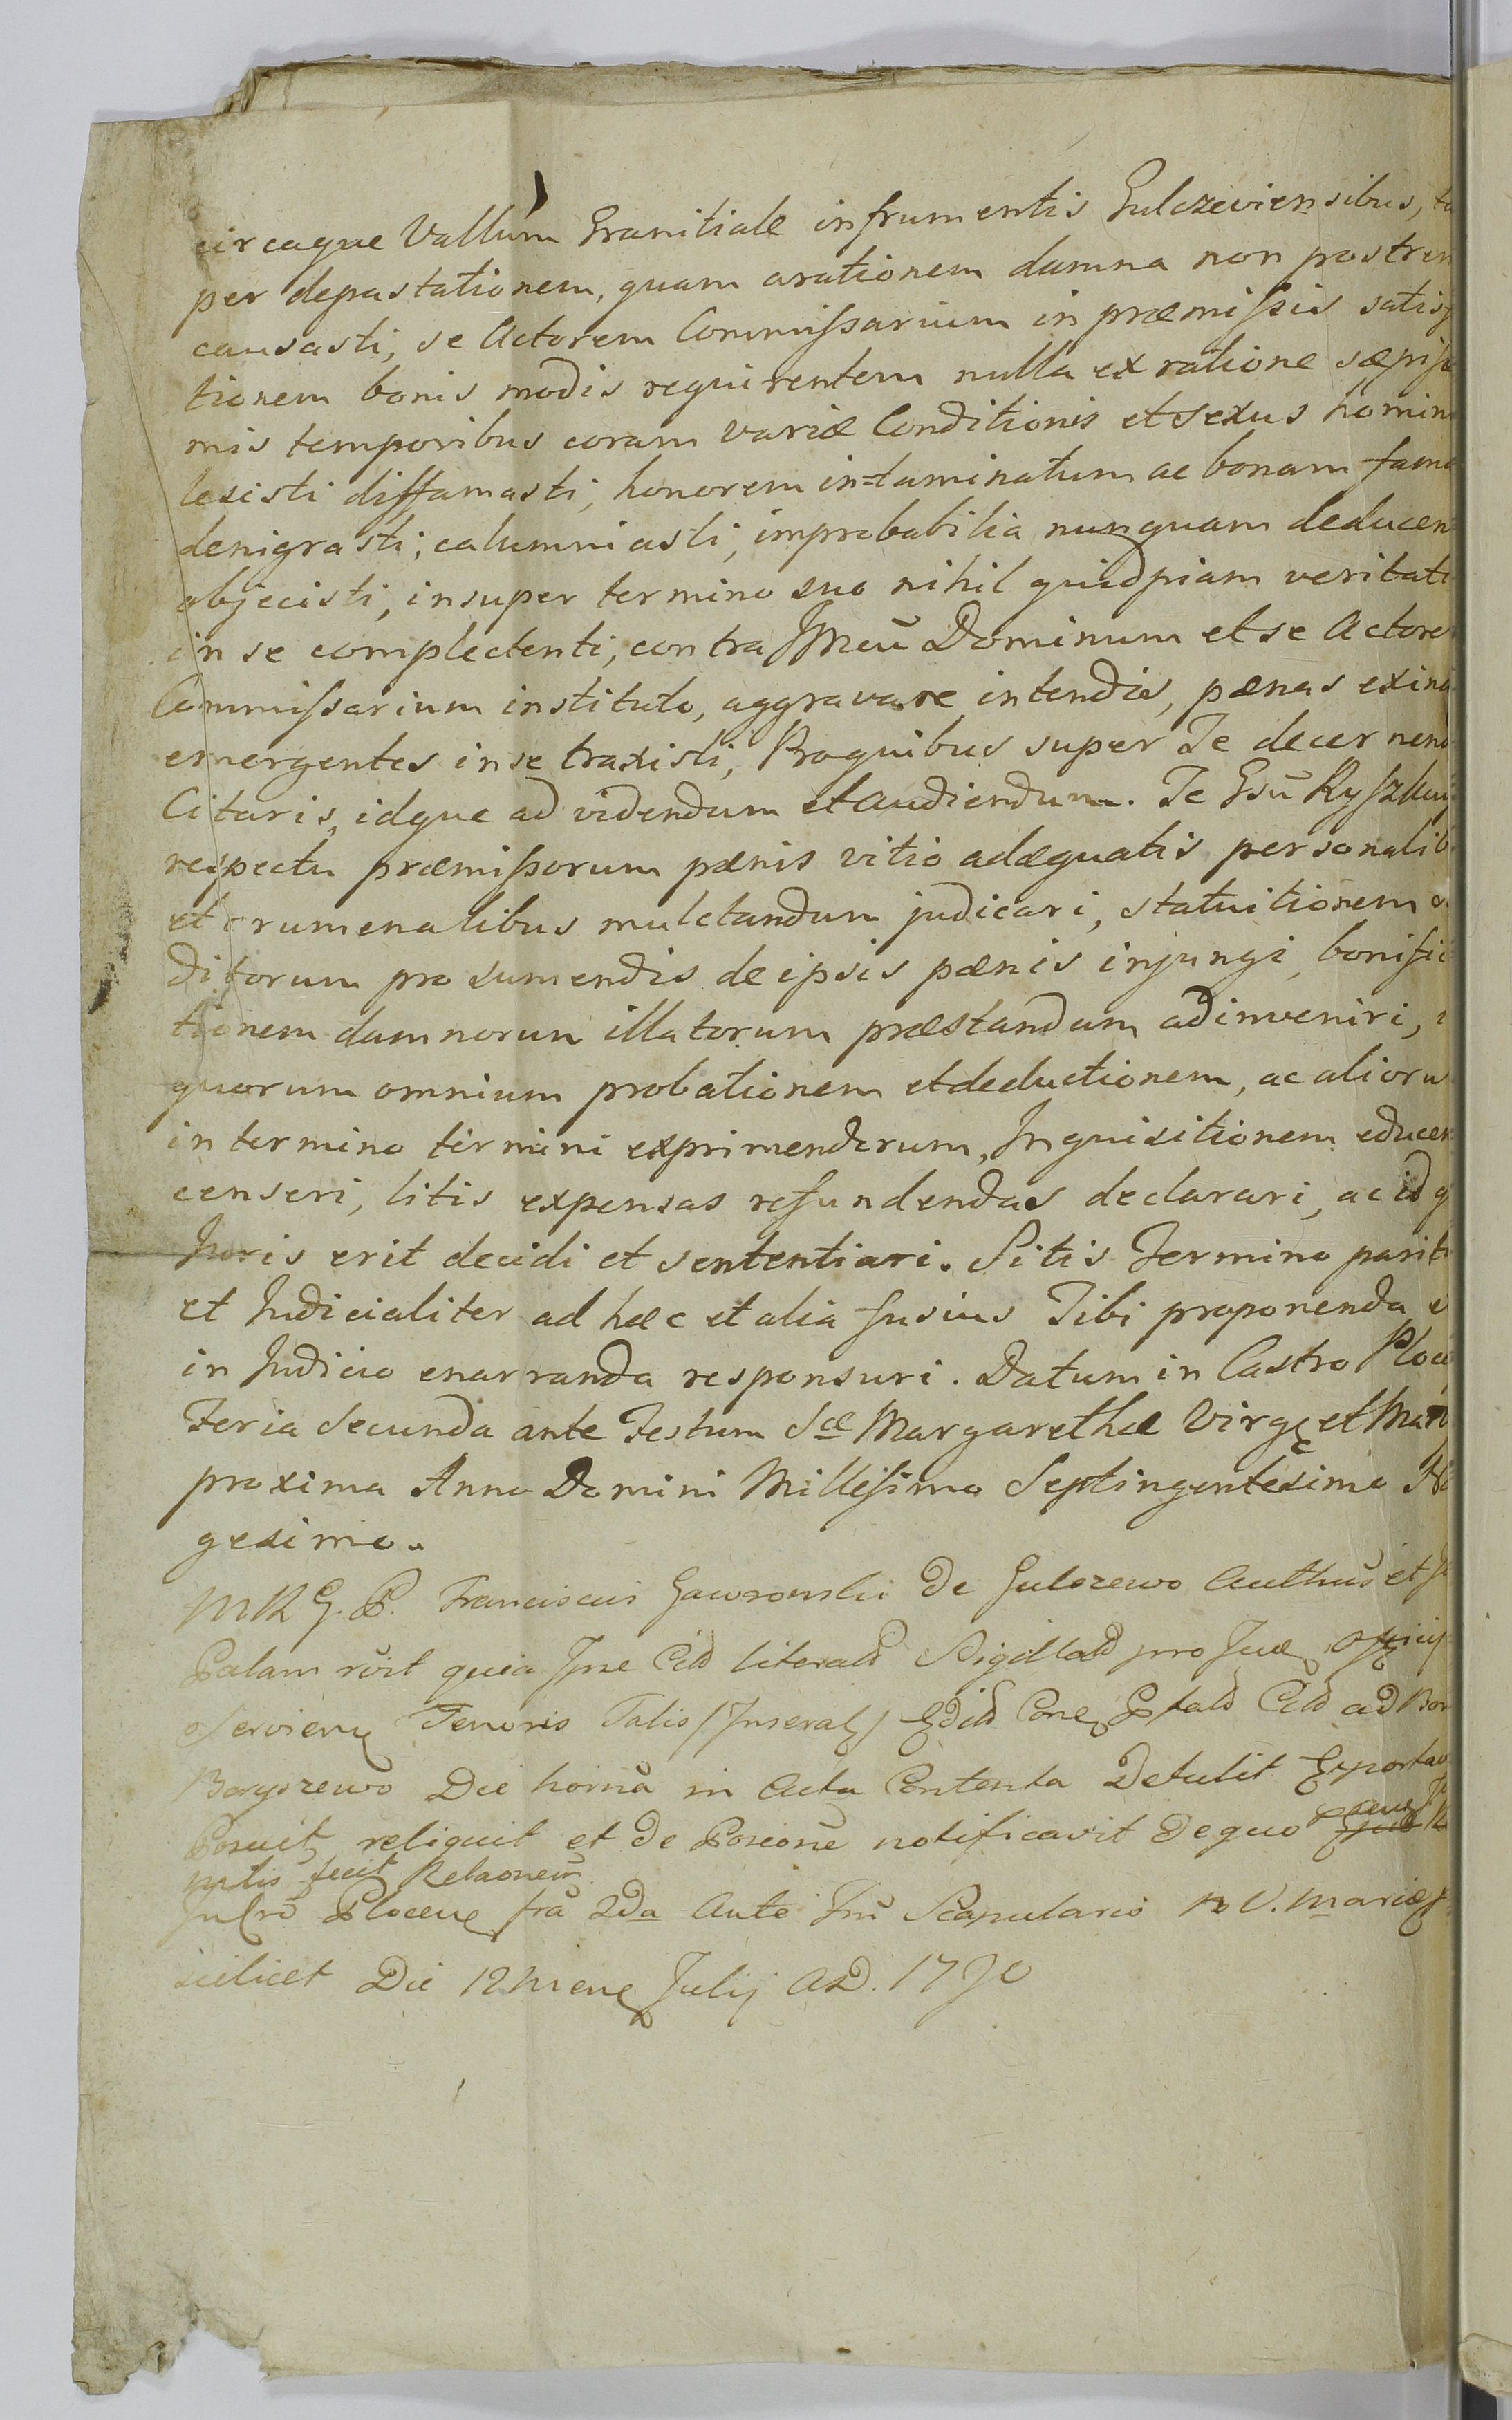 circaque Vallum Granitiale in frumentis Gulczeviensibus, ta
per depastationem, quam arationem damna non postrem
causasti, se Actorem Commissarium in præmissis satisf
tionem bonis modis requirentem nulla ex ratione sæpiss
mis temporibus coram variæ Conditionis et sexus homin
lesisti diffamasti, honorem in=taminatum ac bonam fama
denigrasti, calumniasti, improbabilia nunquam deducen
objecisti, insuper termino suo nihil quidpiam veritati
in se complectenti, contra Dominum et se Actore
Commissarium instituto, aggravare intendis, pænas exind
emergentes in se traxisti, Proquibus super Te decernend
Citaris, idque ad videndum et audiendum. Te Gsū Ryszkow
respectu præmissorum pænis vitio adæquatis personalib
et crumenalibus mulctandum judicari, statuitionem
ditorum pro sumendis de ipsis pænis injungi, bonific
tionem damnorum illatorum præstandam adinveniri,
quorum omnium probationem et deductionem, ac alioru
in termino termini exprimendorum, Inquisitionem educen
censeri, litis expensas refundendas declarari, ac id q
Juris erit decidi et sententiari. Sitis Termino parit
et Judicialiter ad hæc et alia fusius Tibi proponenda e
in Judicio enarranda responsuri. Datum in Castro Ploce
Feria Secunda ante Festum Scæ Margarethæ Virg et Mart
proxima Anno Domini Millesimo Septingentesimo No
gesimo.
M R G. P. Franciscus Gawronski de Gulczewo Authus et
Palam rūit quia literas Sigillat pro officij
serviens Tenoris Talis ad Bor
Boryszewo Die horna in Acta Contenta Detulit Exportav
Posuit reliquit et de Posicione notificavit De quo
fecit Relaonem
Plocen fra 2da Ante Scapularis B V. Mariæ
scilicet Die 12 Mens Julij A D. 1790